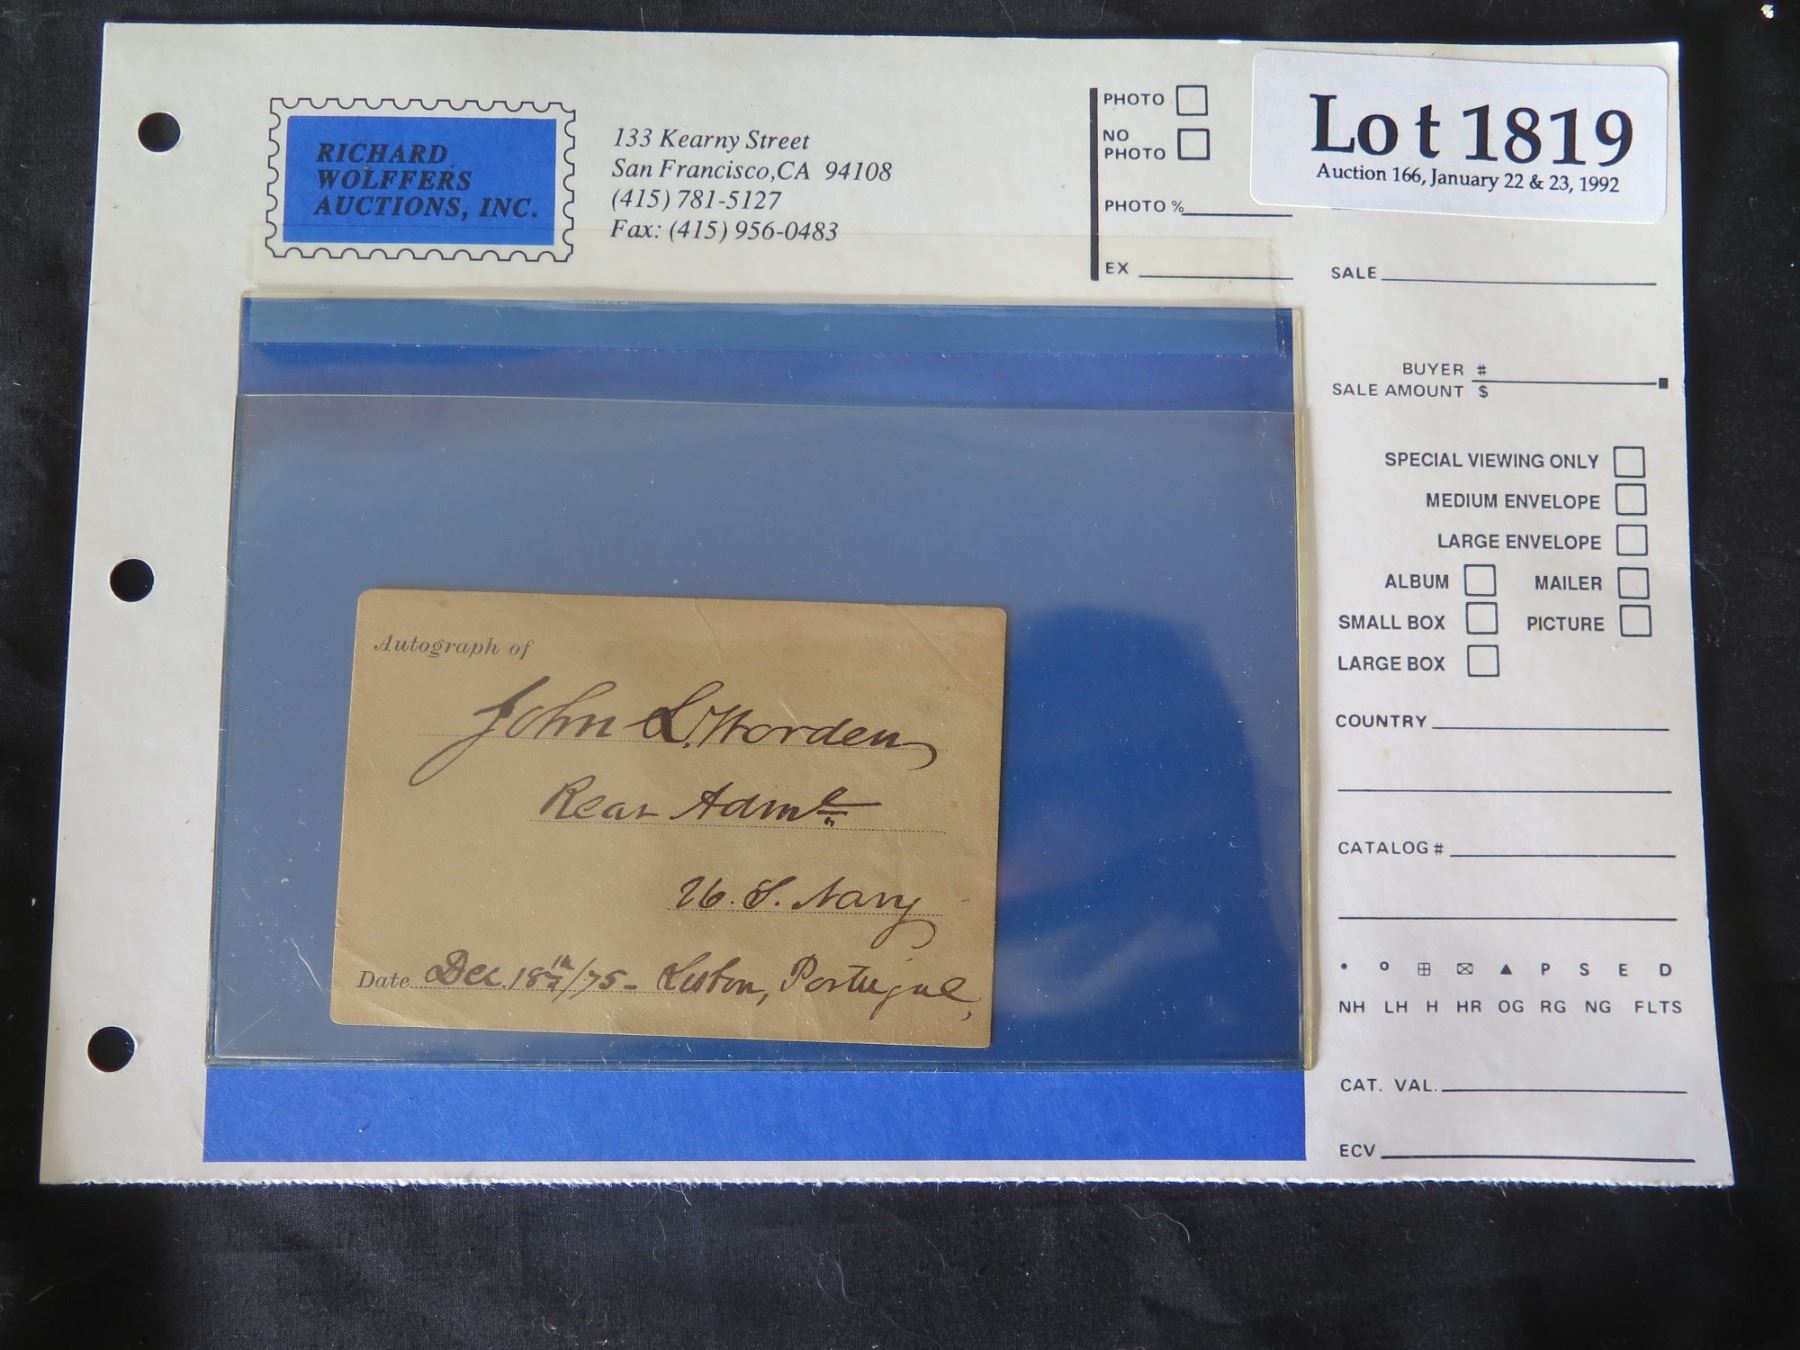 RICHARD
WOLFFERS
AUCTIONS, INC.
133 Kearny Street
San Francisco,CA 94108
(415) 781-5127
Fax: (415) 956-0483
PHOTO
NO
PHOTO
PHOTO %
EX
Lot 1819
Auction 166, January 22 & 23, 1992
SALE
BUYER #
SALE AMOUNT $
SPECIAL VIEWING ONLY
MEDIUM ENVELOPE
LARGE ENVELOPE
ALBUM MAILER
SMALL BOX PICTURE
LARGE BOX
COUNTRY
CATALOG #
• o ⊞ ☒ ▲ P S E D
NH LH H HR OG RG NG FLTS
CAT. VAL.
ECV
Autograph of
John L. Worden
Rear Adml
U. S. Navy
Date Dec. 18th/75 - Lisbon, Portugal,